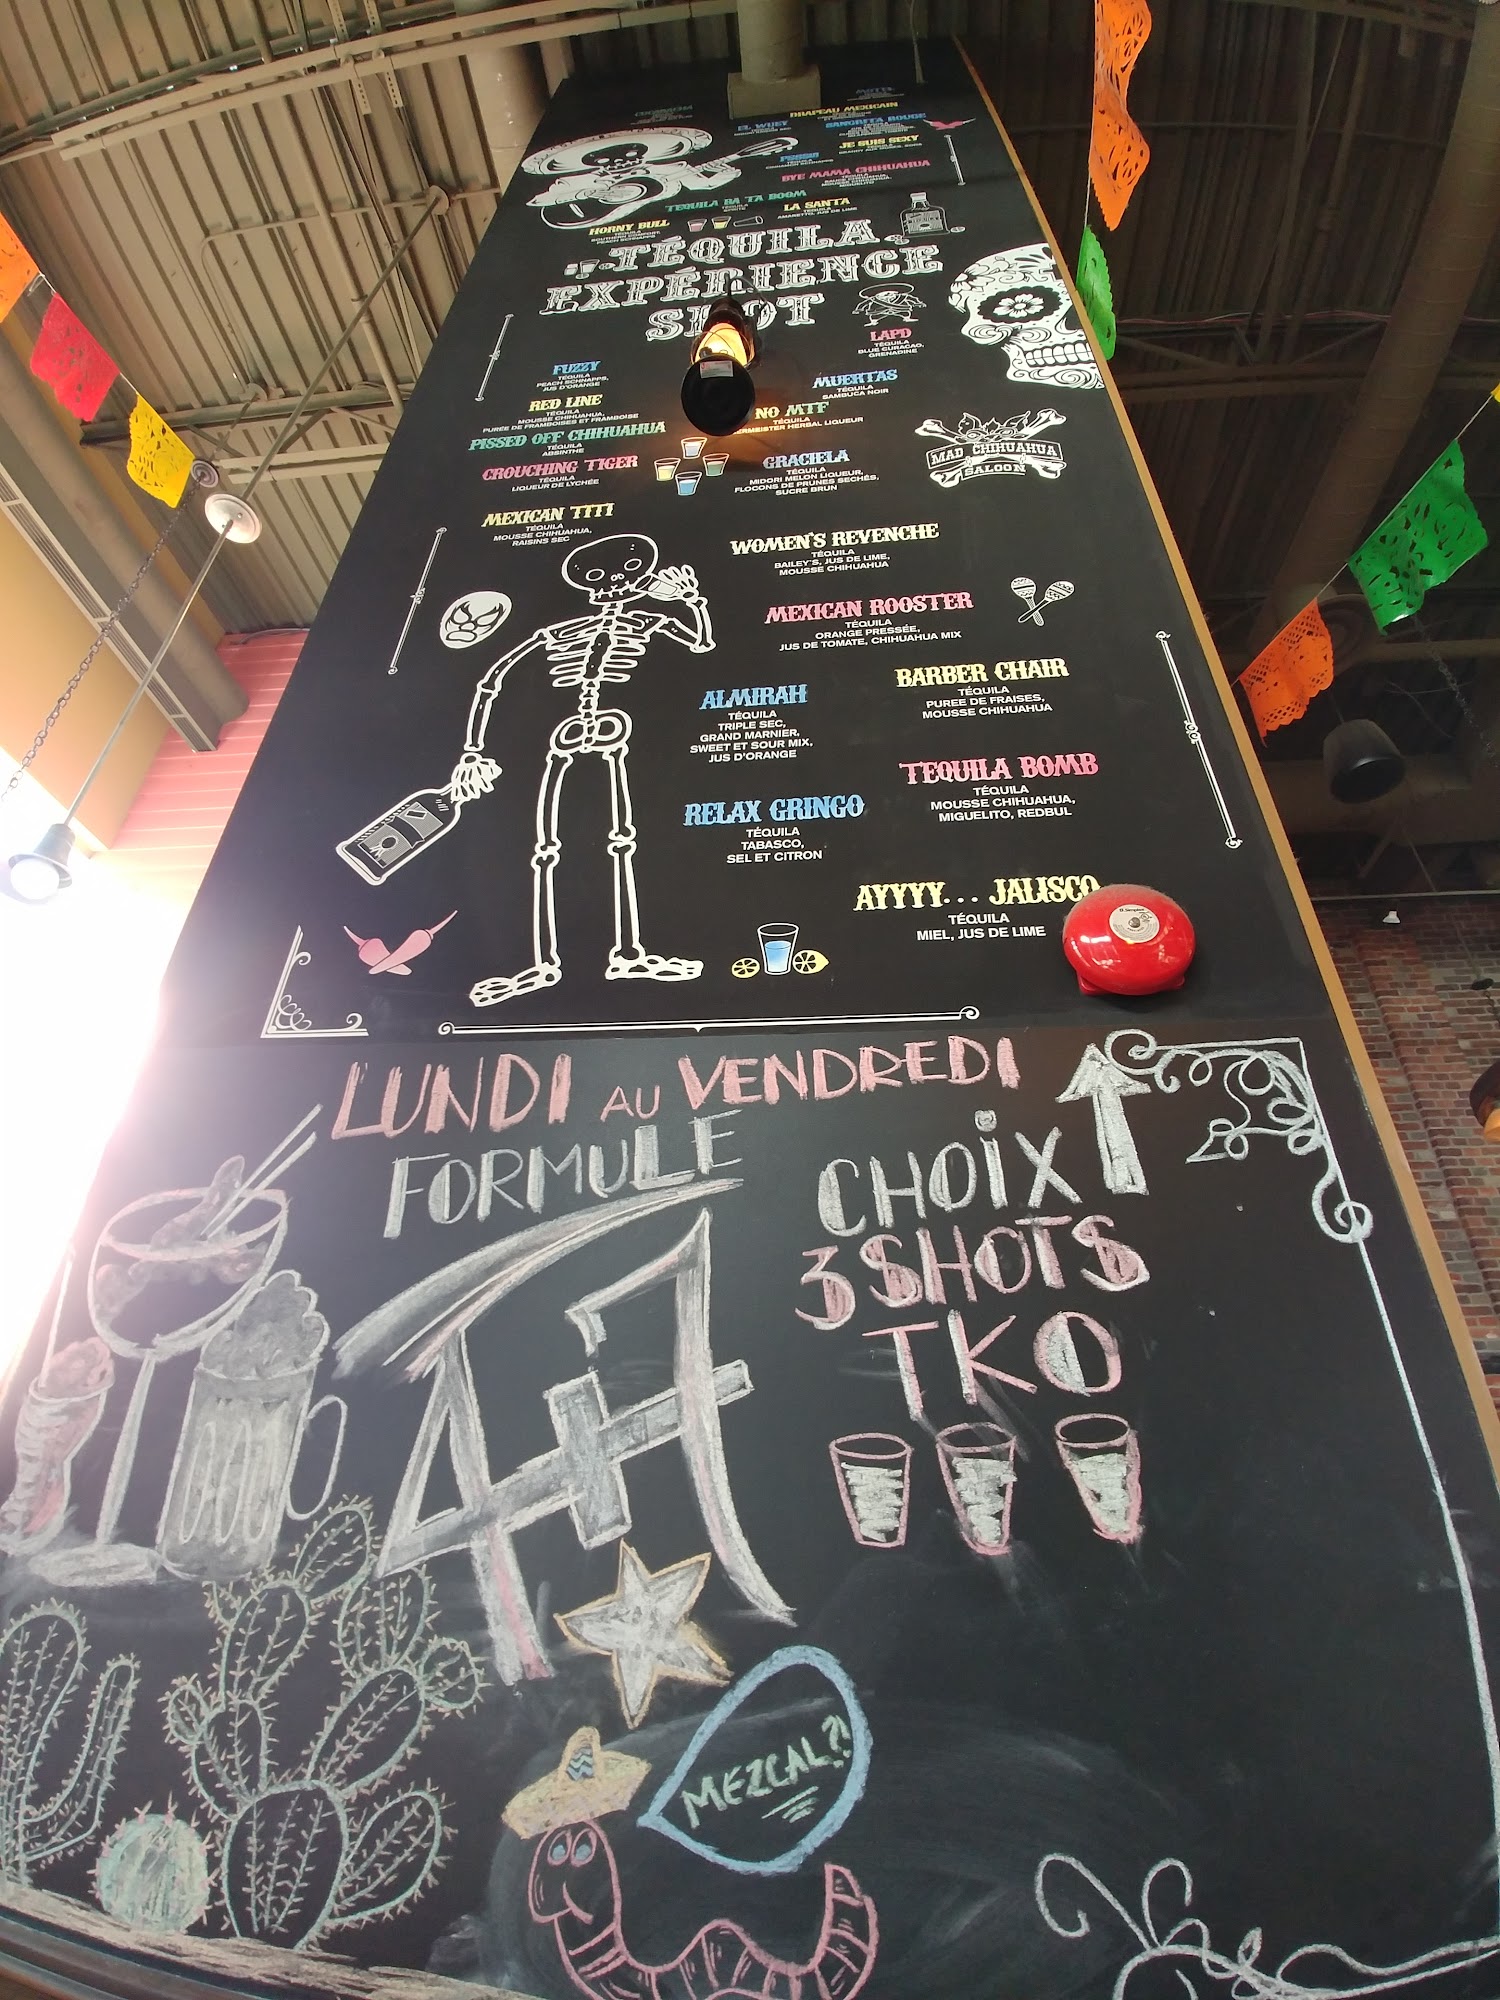 DRAPEAU MEXICAIN
EL WUEY
SANGRITA ROUGE
JE SUIS SEXY
TÉQUILA
BYE MAMA CHIHUAHUA
TÉQUILA
TEQUILA RA TA BOOM
LA SANTA
TÉQUILA
AMARETTO, JUS DE LIME
HORNY BULL
TÉQUILA
SOUTHERN COMFORT,
PEACH SCHNAPPS
TÉQUILA
EXPÉRIENCE
SHOT
LAPD
TÉQUILA
BLUE CURACAO,
GRENADINE
FUZZY
TÉQUILA
PEACH SCHNAPPS,
JUS D'ORANGE
MUERTAS
TÉQUILA
SAMBUCA NOIR
RED LINE
TÉQUILA
MOUSSE CHIHUAHUA,
PURÉE DE FRAMBOISES ET FRAMBOISE
NO MTF
TÉQUILA
HERBAL LIQUEUR
MAD CHIHUAHUA
SALOON
PISSED OFF CHIHUAHUA
TÉQUILA
ABSINTHE
CROUCHING TIGER
TÉQUILA
LIQUEUR DE LYCHÉE
GRACIELA
TÉQUILA
MIDORI MELON LIQUEUR,
FLOCONS DE PRUNES SECHÉS,
SUCRE BRUN
MEXICAN TITI
TÉQUILA
MOUSSE CHIHUAHUA,
RAISINS SEC
WOMEN'S REVENCHE
TÉQUILA
BAILEY'S, JUS DE LIME,
MOUSSE CHIHUAHUA
MEXICAN ROOSTER
TÉQUILA
ORANGE PRESSÉE,
JUS DE TOMATE, CHIHUAHUA MIX
BARBER CHAIR
TÉQUILA
PUREE DE FRAISES,
MOUSSE CHIHUAHUA
ALMIRAH
TÉQUILA
TRIPLE SEC,
GRAND MARNIER,
SWEET ET SOUR MIX,
JUS D'ORANGE
TEQUILA BOMB
TÉQUILA
MOUSSE CHIHUAHUA,
MIGUELITO, REDBUL
RELAX GRINGO
TÉQUILA
TABASCO,
SEL ET CITRON
AYYYY... JALISCO
TÉQUILA
MIEL, JUS DE LIME
LUNDI AU VENDREDI
FORMULE
4À7
CHOIX
3 SHOTS
TKO
MEZCAL?!